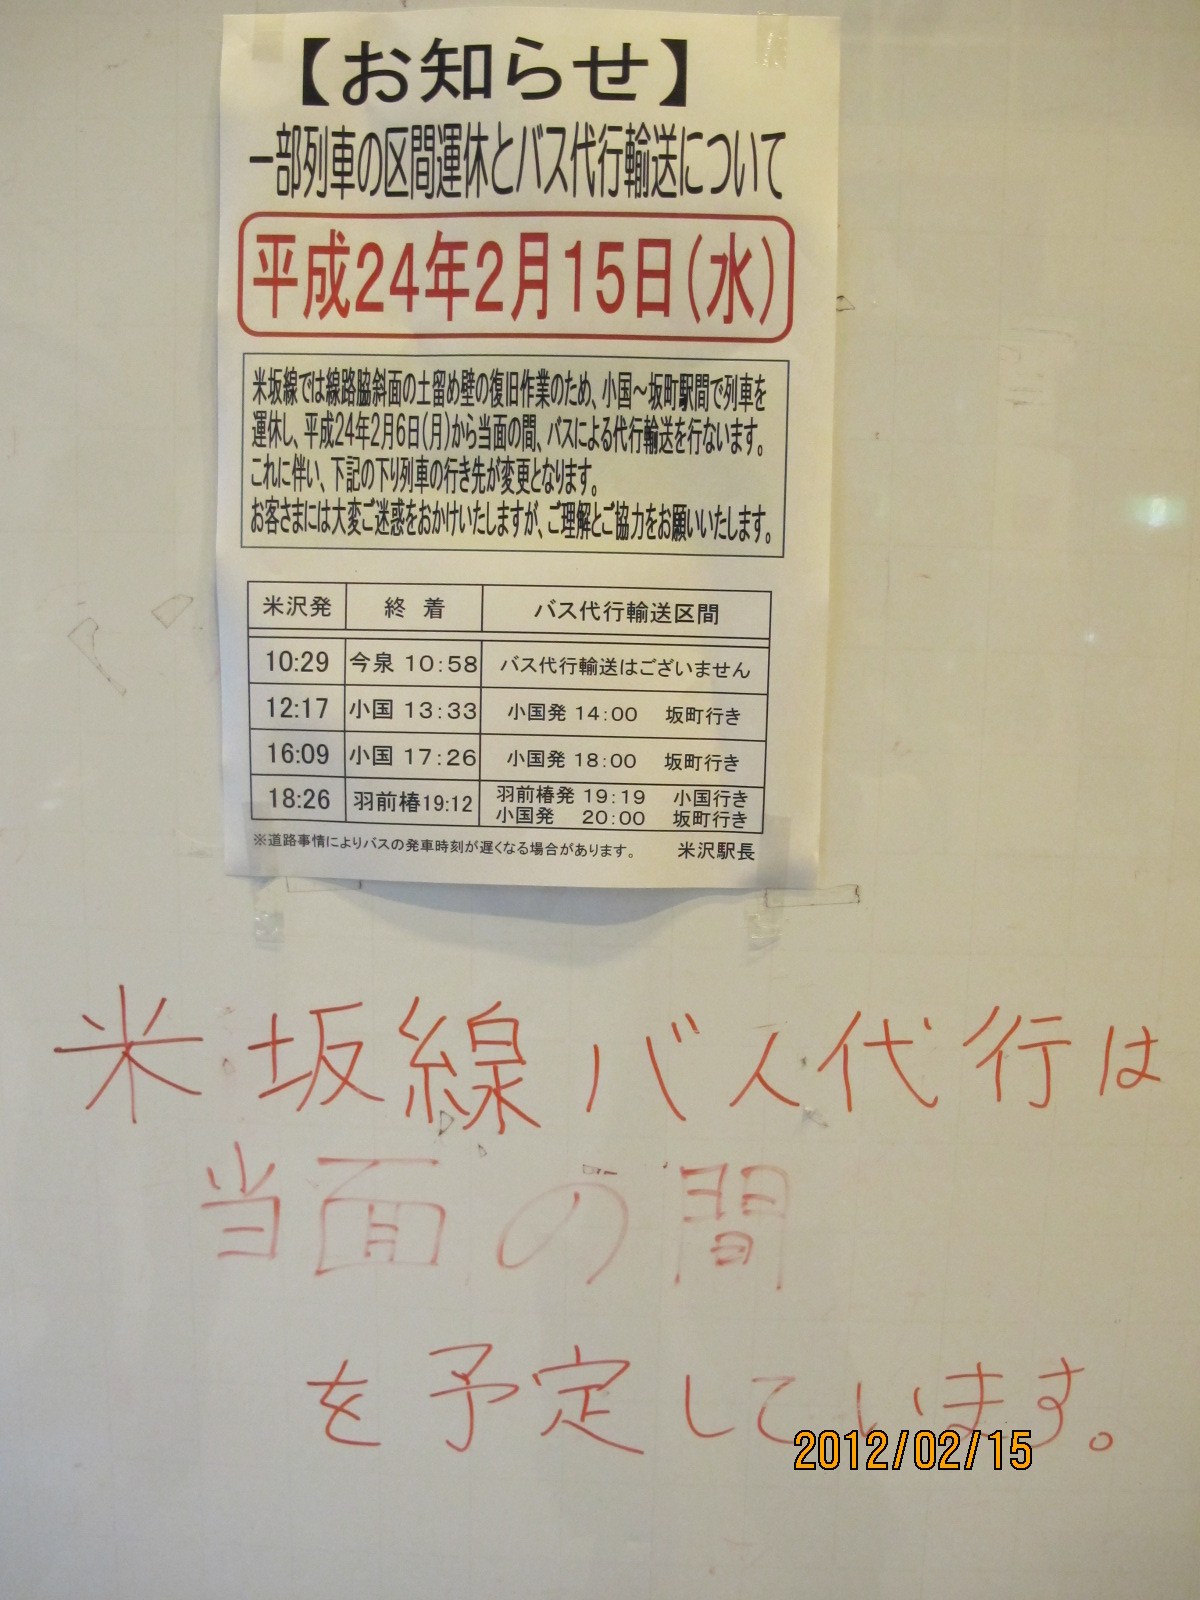 【お知らせ】
一部列車の区間運休とバス代行輸送について
平成24年2月15日(水)
米坂線では線路脇斜面の土留め壁の復旧作業のため、小国～坂町駅間で列車を
運休し、平成24年2月6日(月)から当面の間、バスによる代行輸送を行ないます。
これに伴い、下記の下り列車の行き先が変更となります。
お客さまには大変ご迷惑をおかけいたしますが、ご理解とご協力をお願いいたします。
米沢発 終着 バス代行輸送区間
10:29 今泉 10:58 バス代行輸送はございません
12:17 小国 13:33 小国発 14:00 坂町行き
16:09 小国 17:26 小国発 18:00 坂町行き
18:26 羽前椿19:12 羽前椿発 19:19 小国行き
小国発 20:00 坂町行き
※道路事情によりバスの発車時刻が遅くなる場合があります。 米沢駅長
米坂線バス代行は
当面の間
を予定しています。
2012/02/15